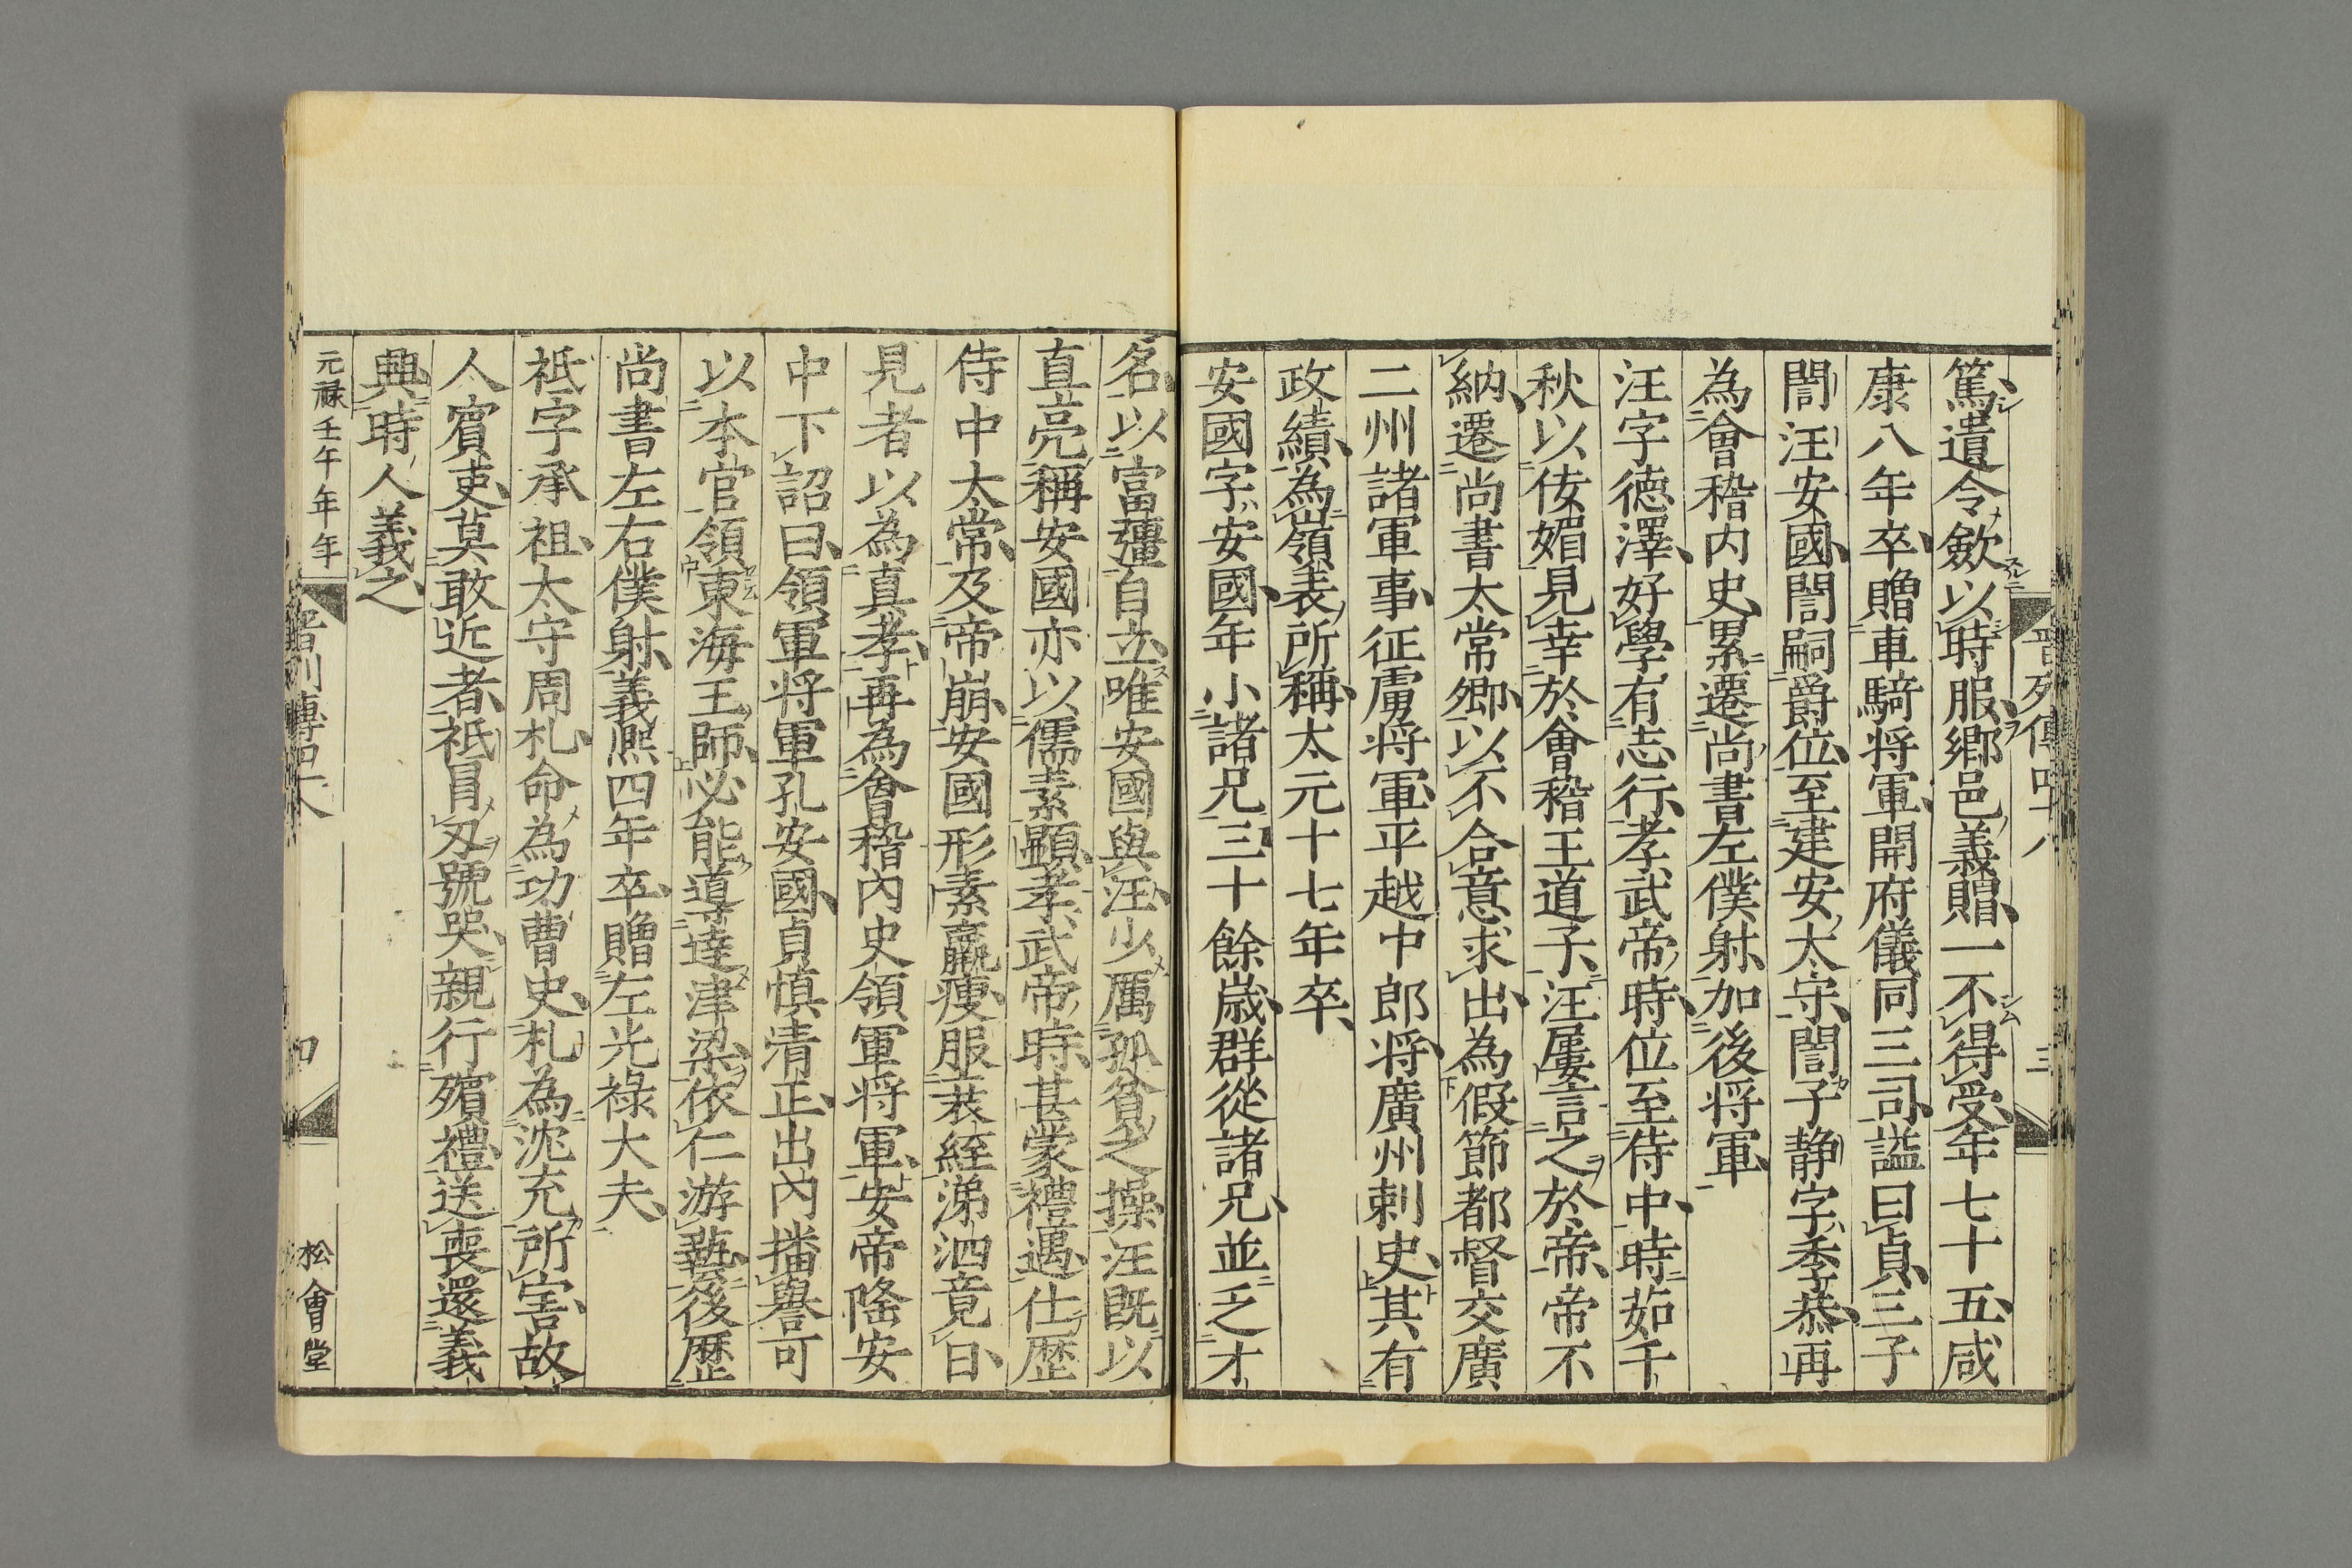 晉列傳四十八
三
篤遺令斂以時服鄉邑義賵一不得受年七十五咸
康八年卒贈車騎将軍開府儀同三司謚曰貞三子
誾汪安國誾嗣爵位至建安太守誾子静字季恭再
為會稽内史累遷尚書左僕射加後将軍
汪字德澤好學有志行孝武帝時位至侍中時茹千
秋以佞媚見幸於會稽王道子汪屢言之於帝帝不
納遷尚書太常卿以不合意求出為假節都督交廣
二州諸軍事征虜将軍平越中郎将廣州刺史其有
政績為嶺表所稱太元十七年卒
安國字安國年小諸兄三十餘歳群從諸兄並乏才
名以富彊自立唯安國與汪少厲孤貧之操汪既以
直亮稱安國亦以儒素顯孝武帝時甚蒙禮遇仕歴
侍中太常及帝崩安國形素羸瘦服衰絰涕泗竟日
見者以為真孝再為會稽内史領軍将軍安帝隆安
中下詔曰領軍将軍孔安國貞慎清正出内播譽可
以本官領東海王師必能導達津梁依仁游藝後歴
尚書左右僕射義熙四年卒贈左光祿大夫
祇字承祖太守周札命為功曹史札為沈充所害故
人賓吏莫敢近者祇冒刃號哭親行殯禮送喪還義
興時人義之
元祿壬午年年年
晉列傳四十八
四
松會堂